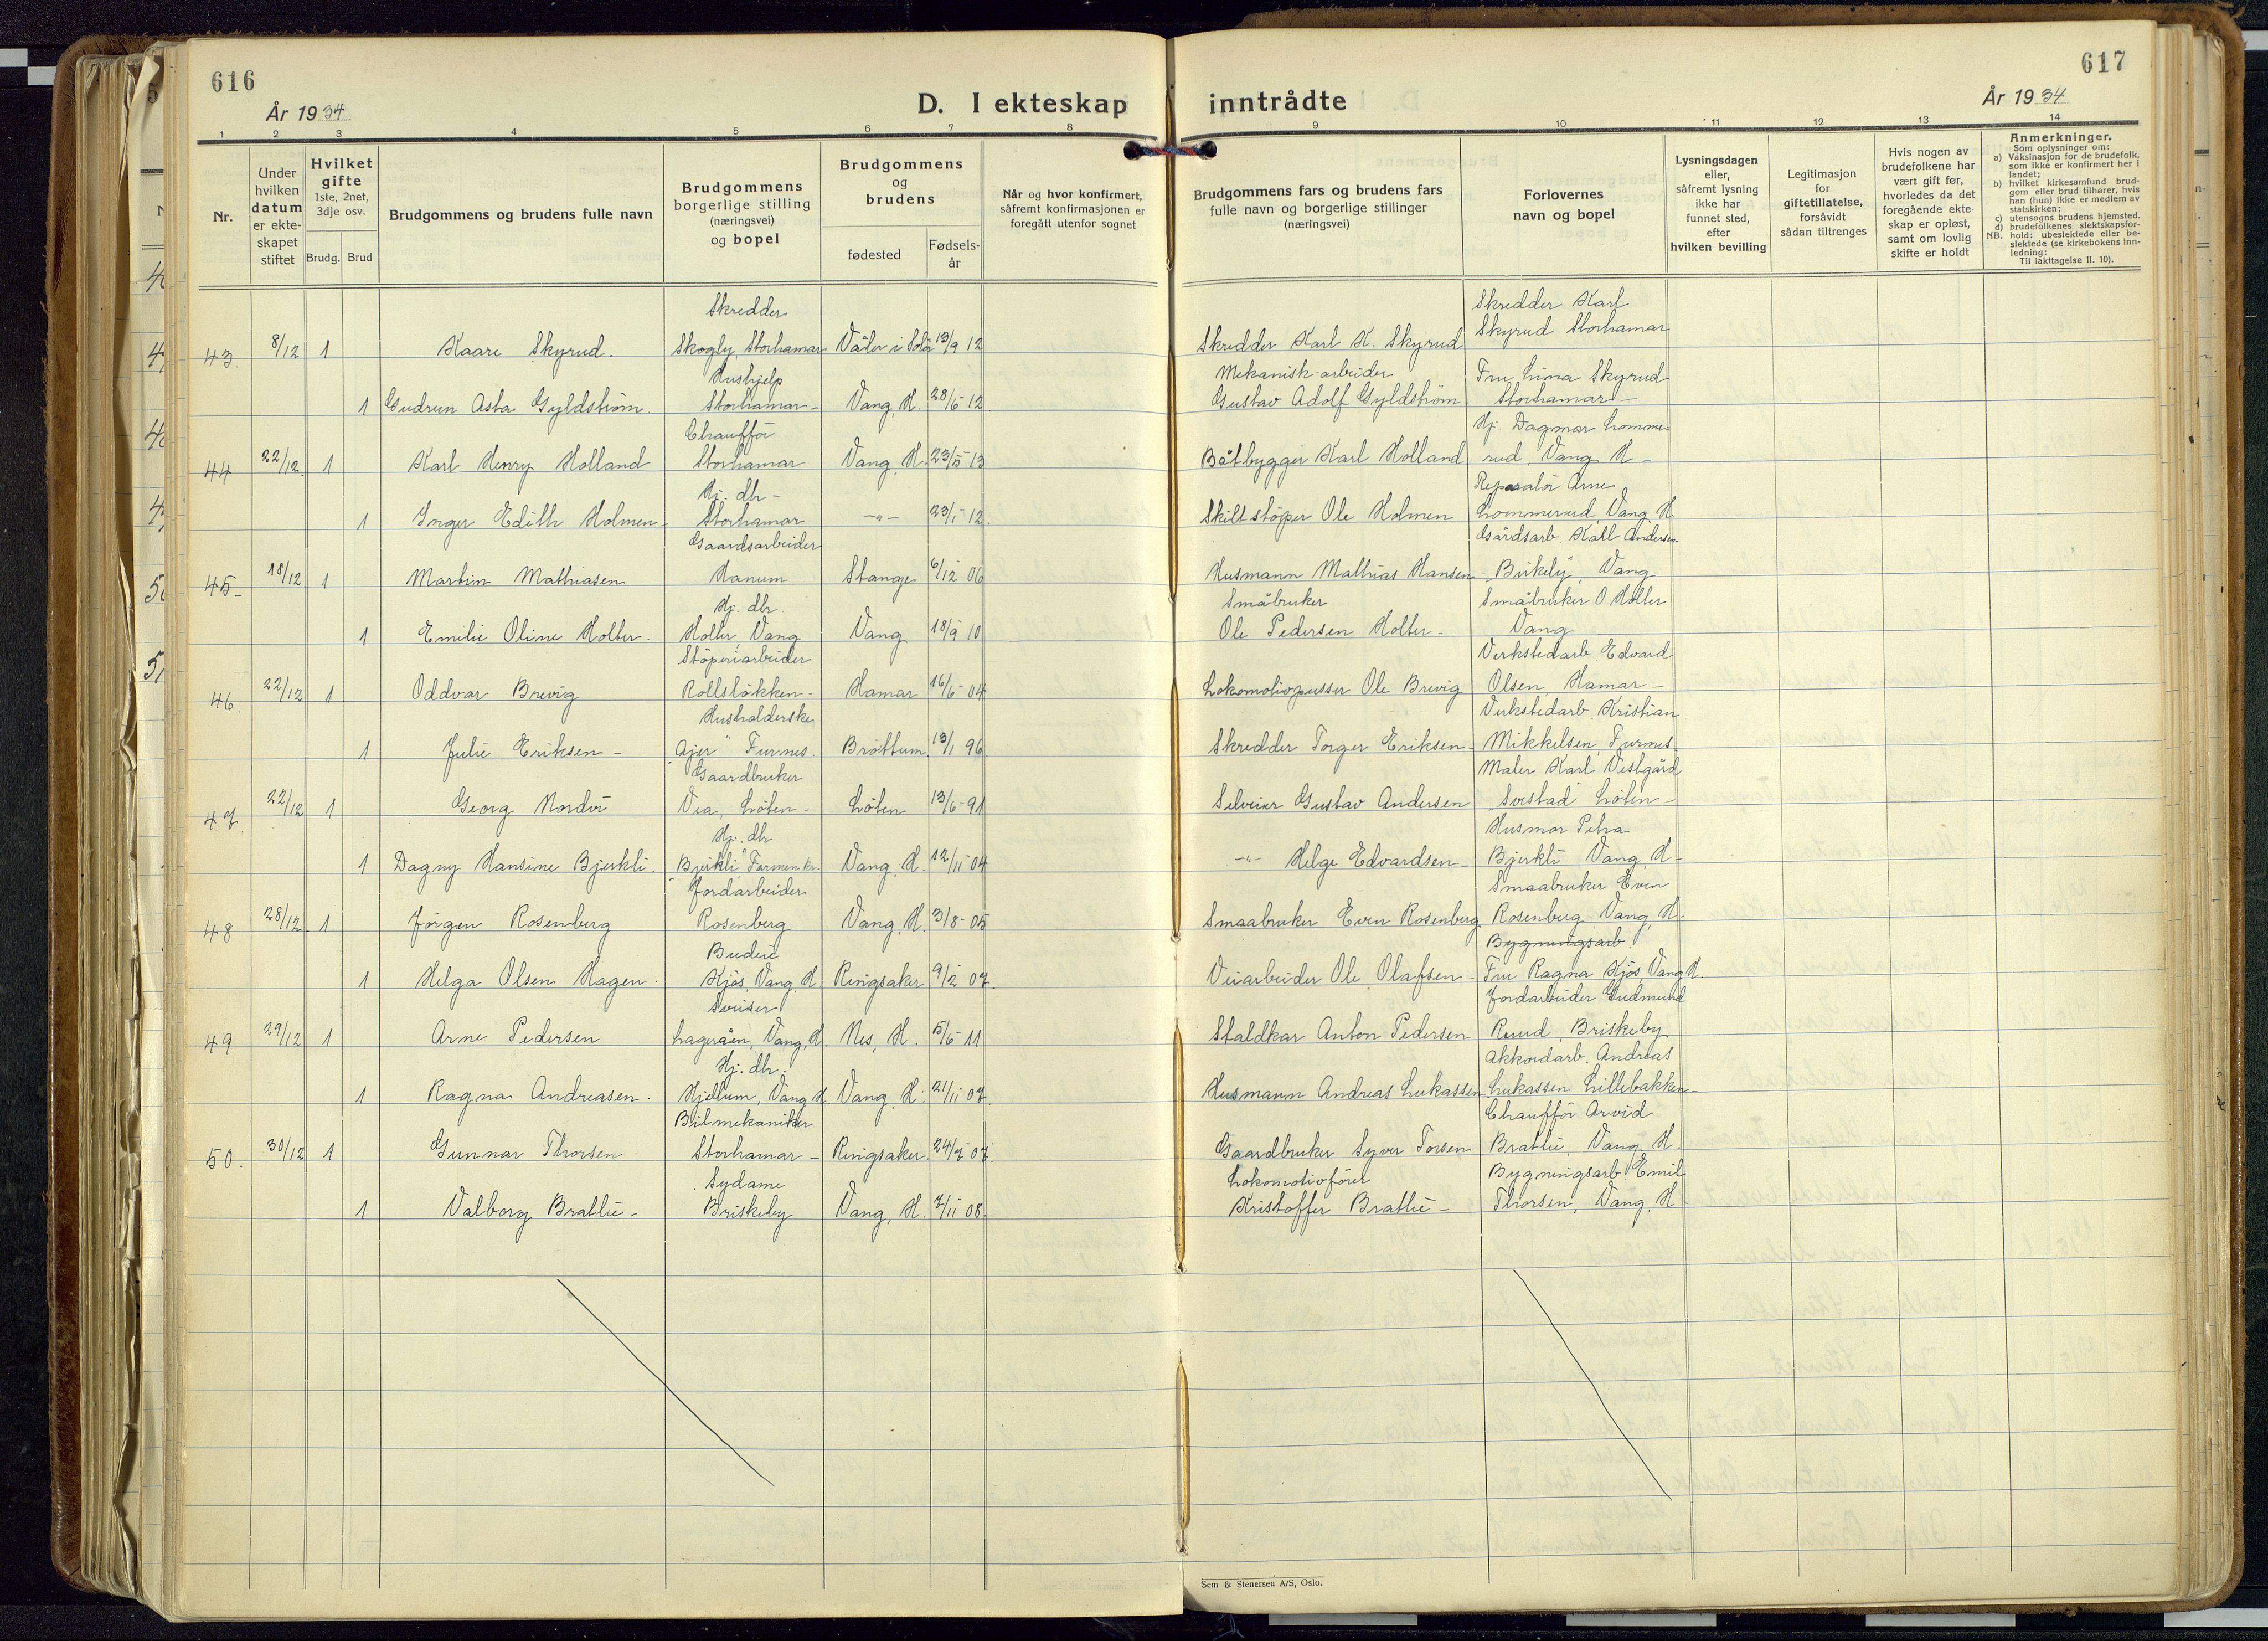 616
År 1934
D. I ekteskap
inntrådte
617
År 1934
1 2 3 4 5 6 7 8 9 10 11 12 13 14
Nr.
Under
hvilken
datum
er ekte-
skapet
stiftet
Hvilket
gifte
1ste, 2net,
3dje osv.
Brudg. Brud
Brudgommens og brudens fulle navn
Brudgommens
borgerlige stilling
(næringsvei)
og bopel
Brudgommens
og
brudens
fødested
Fødsels-
år
Når og hvor konfirmert,
såfremt konfirmasjonen er
foregått utenfor sognet
Brudgommens fars og brudens fars
fulle navn og borgerlige stillinger
(næringsvei)
Forlovernes
navn og bopel
Lysningsdagen
eller,
såfremt lysning
ikke har
funnet sted,
efter
hvilken bevilling
Legitimasjon
for
giftetillatelse,
forsåvidt
sådan tiltrenges
Hvis nogen av
brudefolkene har
vært gift før,
hvorledes da det
foregående ekte-
skap er opløst,
samt om lovlig
skifte er holdt
Anmerkninger.
Som oplysninger om:
a) Vaksinasjon for de brudefolk,
som ikke er konfirmert her i
landet;
b) hvilket kirkesamfund brud-
gom eller brud tilhører, hvis
han (hun) ikke er medlem av
statskirken;
c) utensogns brudens hjemsted.
d) brudefolkenes slektskapsfor-
NB. hold: ubeslektede eller be-
slektede (se kirkebokens inn-
ledning:
Til iakttagelse II. 10).
Skredder Skredder Karl
43. 8/12 1 Kaare Skyrud. Skogly, Storhamar Våler i Solør 13/9 12 Skredder Karl K. Skyrud Skyrud Storhamar
Hushjelp Mekanisk-arbeider Fru Lina Skyrud
1 Gudrun Asta Gyldstrøm. Storhamar - Vang, H. 28/6 12 Gustav Adolf Gyldstrøm Storhamar -
Chauffør Hj. Dagmar Lomme-
44 22/12. 1 Karl Henry Holland Storhamar Vang, H. 23/5 13 Båtbygger Karl Holland rud, Vang H -
Hj. dtr - Reparatør Arne
1 Inger Edith Holmen - Storhamar -"- 23/1 12. Skiltstøper Ole Holmen Lommerud, Vang, H
Gaardsarbeider Gårdsarb. Karl Andersen
45- 18/12 1 Martin Mathiasen Hanum Stange 6/12 06 Husmann Mathias Hansen "Birkely", Vang
Hj. dtr. Småbruker Småbruker O Holter
1 Emilie Oline Holter. Holter, Vang Vang 18/9 10 Ole Pedersen Holter - Vang -
Støperiarbeider Verkstedarb. Edvard
46. 22/12 1 Oddvar Brevig Rollsløkken - Hamar 16/6 - 04 Lokomotivpusser Ole Brevig Olsen, Hamar -
Husholderske Verkstedarb. Kristian
1 Julie Eriksen - "Ajer" Furnes. Brøttum 13/1 96 Skredder Torger Eriksen - Mikkelsen, Furnes.
Gaardbruker Maler Karl Vestgård
47. 22/12 1 Georg Nordvi Vea, Løten - Løten 13/6 - 91 Selveier Gustav Andersen Løten -
Hj. dtr Husmor Petra
1 Dagny Hansine Bjerkli. "Bjerkli", Vang, H. 12/11 04 -"- Helge Edvardsen - Bjerkli Vang, H -
Jordarbeider Smaabruker Even
48 28/12 1 Jørgen Rosenberg Rosenberg Vang, H. 3/8 - 05 Smaabruker Even Rosenberg Rosenberg, Vang, H.
Budeie Bygningsarb.
1 Helga Olsen Hagen. Kjøs, Vang, H Ringsaker 9/2 07. Veiarbeider Ole Olafsen - Fru Ragna Kjøs, Vang H
Sveiser Jordarbeider Gudmund
49 29/12 1 Arne Pedersen Lageråen, Vang, H Nes, H. 5/6 - 11 Staldkar Anton Pedersen Ruud, Briskeby
Hj. dtr. Akkordarb. Andreas
1 Ragna Andreasen. Hjellum, Vang H. Vang, H. 21/11 07. Husmann Andreas Lukassen Lukassen Lillebakken -
Bilmekaniker Chauffør Arvid
50. 30/12 1 Gunnar Thorsen Storhamar - Ringsaker. 24/7 07. Gaardbruker Syver Torsen Bratlie, Vang, H.
Sydame Lokomotivfører Bygningsarb. Emil
1 Valborg Bratlie - Briskeby Vang, H. 7/11 08. Kristoffer Bratlie - Thorsen, Vang, H -
Sem & Stenersen A/S, Oslo.